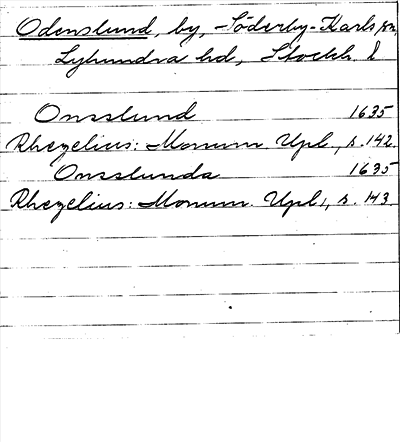 Odenslund, by, Söderby-Karls sn,
Lyhundra hd, Stockh. l
Onsslund 1635
Rhezelius: Monum. Upl., s. 142.
Onsslunda 1635
Rhezelius: Monum. Upl., s. 143.